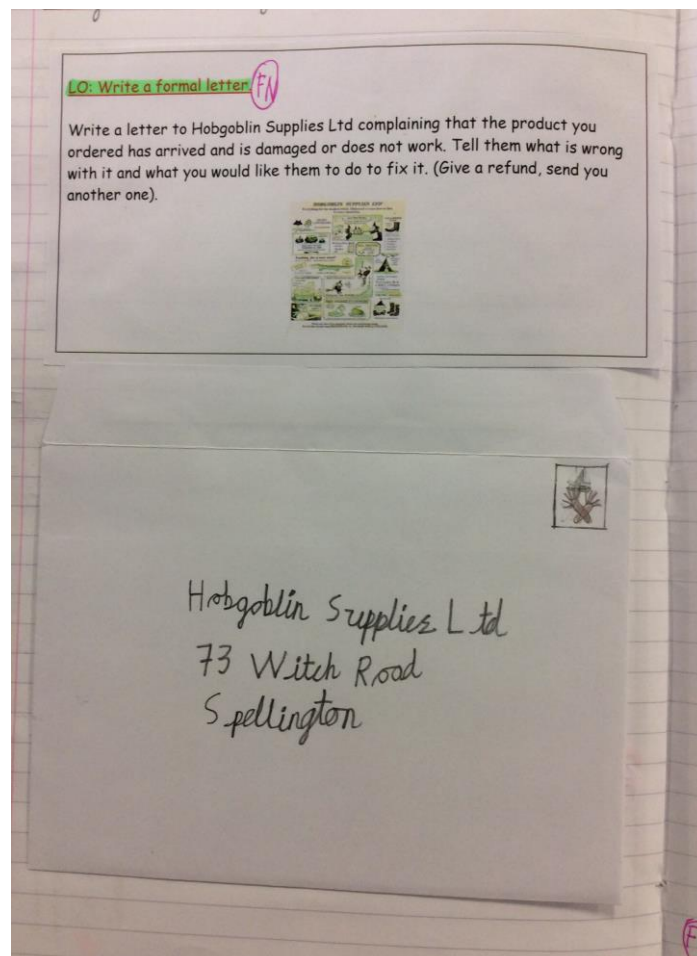 LO: Write a formal letter. FN
Write a letter to Hobgoblin Supplies Ltd complaining that the product you
ordered has arrived and is damaged or does not work. Tell them what is wrong
with it and what you would like them to do to fix it. (Give a refund, send you
another one).
HOBGOBLIN SUPPLIES LTD
Hobgoblin Supplies Ltd
73 Witch Road
Spellington